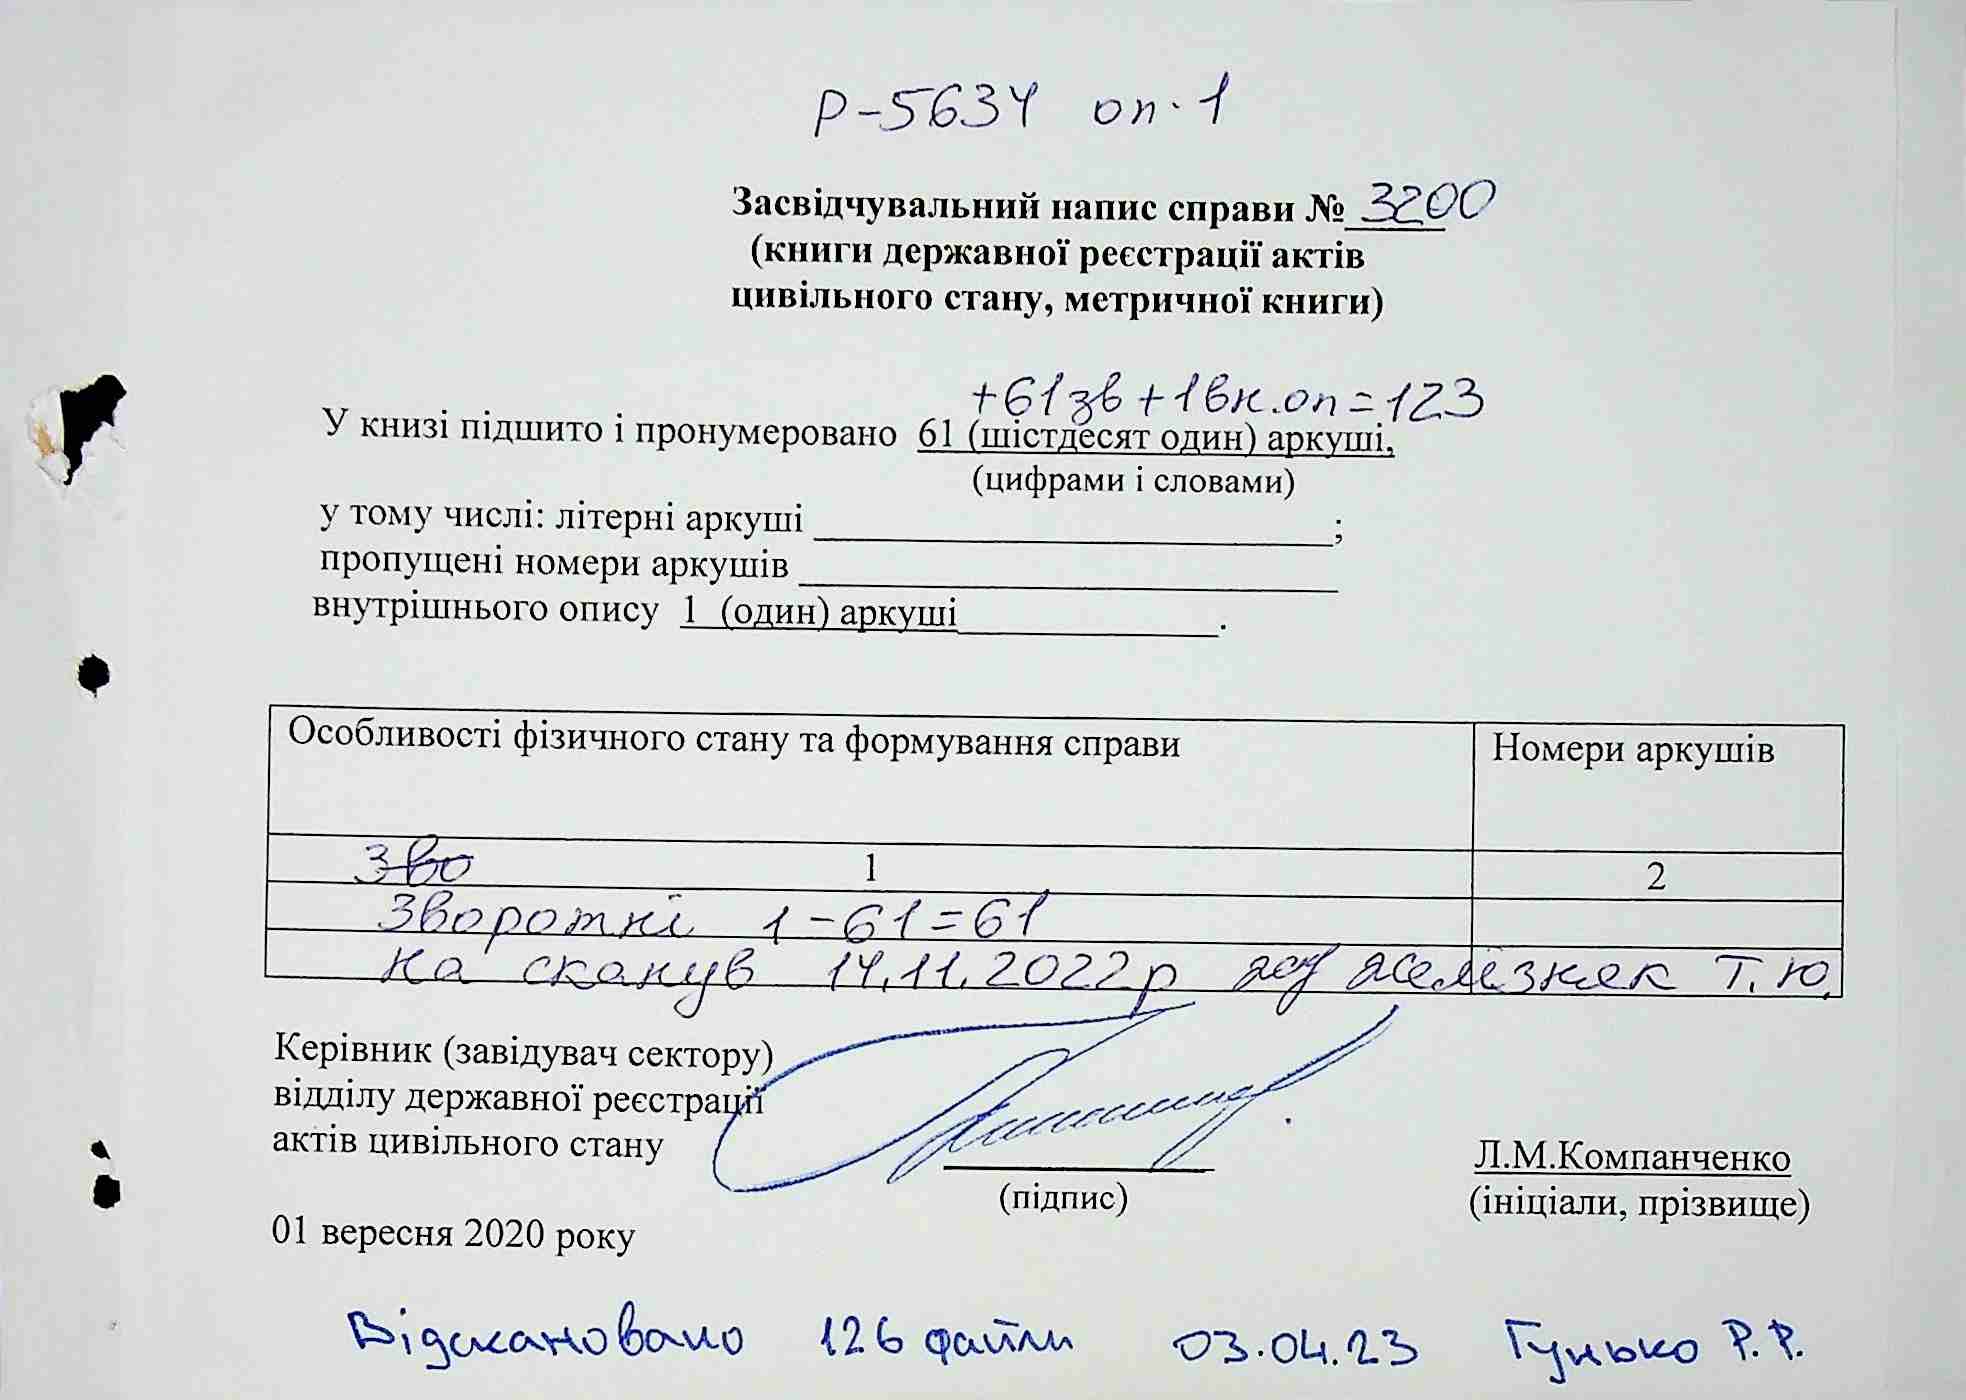 Р-5634 оп.1
Засвідчувальний напис справи № 3200
(книги державної реєстрації актів
цивільного стану, метричної книги)
+61зв+1вн.оп=123
У книзі підшито і пронумеровано 61 (шістдесят один) аркуші,
(цифрами і словами)
у тому числі: літерні аркуші ;
пропущені номери аркушів
внутрішнього опису 1 (один) аркуші .
Особливості фізичного стану та формування справи Номери аркушів
Зво 1 2
Зворотні 1-61=61
На сканув 14.11.2022р Желізняк Т.Ю.
Керівник (завідувач сектору)
відділу державної реєстрації
актів цивільного стану
Л.М.Компанченко
(підпис) (ініціали, прізвище)
01 вересня 2020 року
Відскановано 126 файли 03.04.23 Гунько Р.Р.